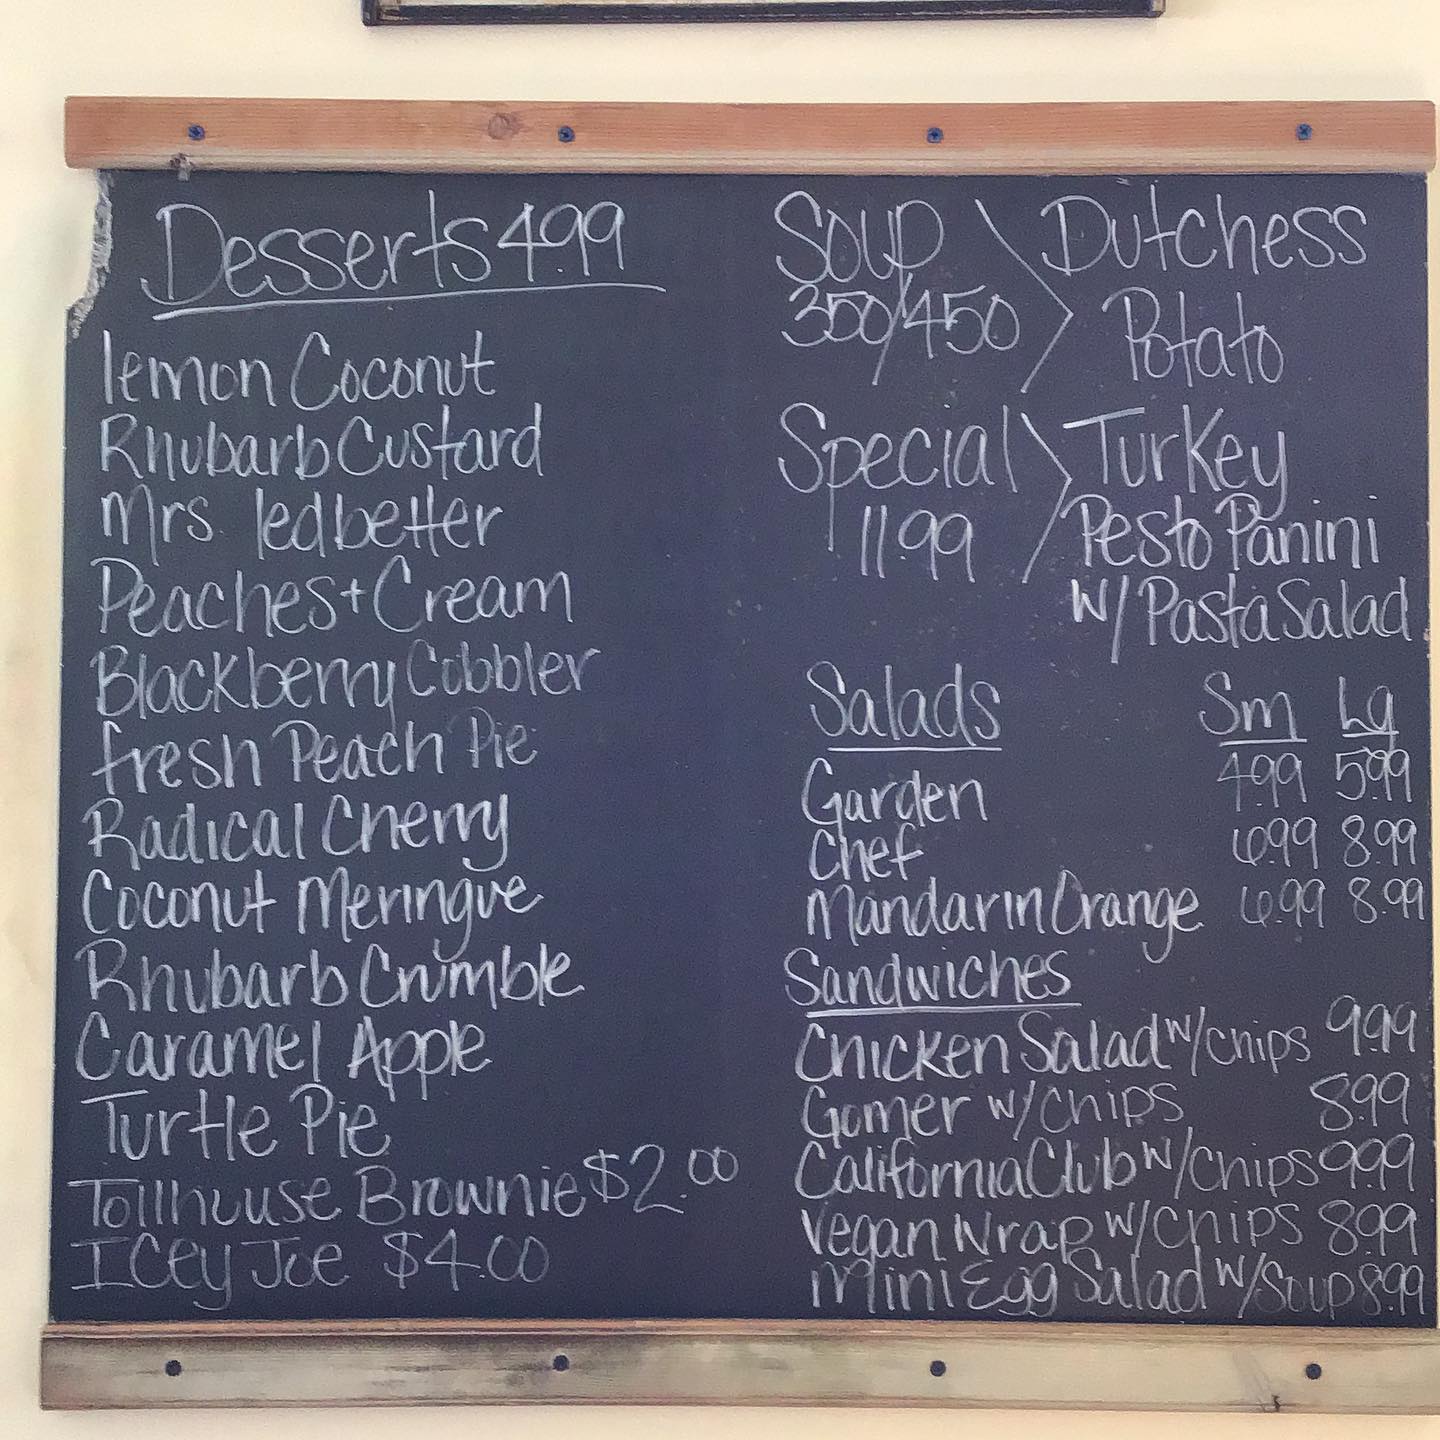 Desserts 4.99
lemon Coconut
Rhubarb Custard
Mrs. ledbetter
Peaches + Cream
Blackberry Cobbler
fresh Peach Pie
Radical Cherry
Coconut Meringue
Rhubarb Crumble
Caramel Apple
Turtle Pie
Tollhouse Brownie $2.00
ICey Joe $4.00
Soup > Dutchess
350/450 Potato
Special > Turkey
11.99 Pesto Panini
w/ Pasta Salad
Salads Sm Lg
Garden 4.99 5.99
Chef 6.99 8.99
Mandarin Orange 6.99 8.99
Sandwiches
Chicken Salad w/chips 9.99
Gomer w/chips 8.99
California Club w/chips 9.99
Vegan Wrap w/chips 8.99
Mini Egg Salad w/Soup 8.99